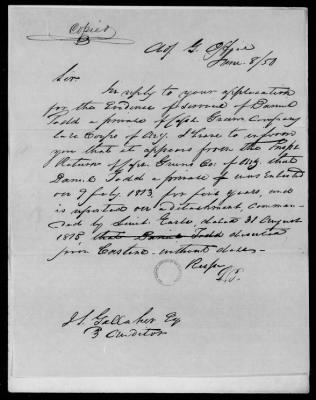 Copied
Adj. G. Office
June 8/50
Sir
In reply to your application
for the Evidence of service of Daniel
Todd a private of Capt. Company
late Corps of Arty. I have to inform
you that it appears from the Inspn
Return of Capt. Co. of Arty. that
Daniel Todd a private was Enlisted
on 9 July 1813, for five years, and
is reported on Detachment comman-
ded by Lieut. Earle, dated 31 August
1815 that Daniel Todd deserted
from Castine without date.
Respy
J. S. Gallaher Esq
3 Auditor